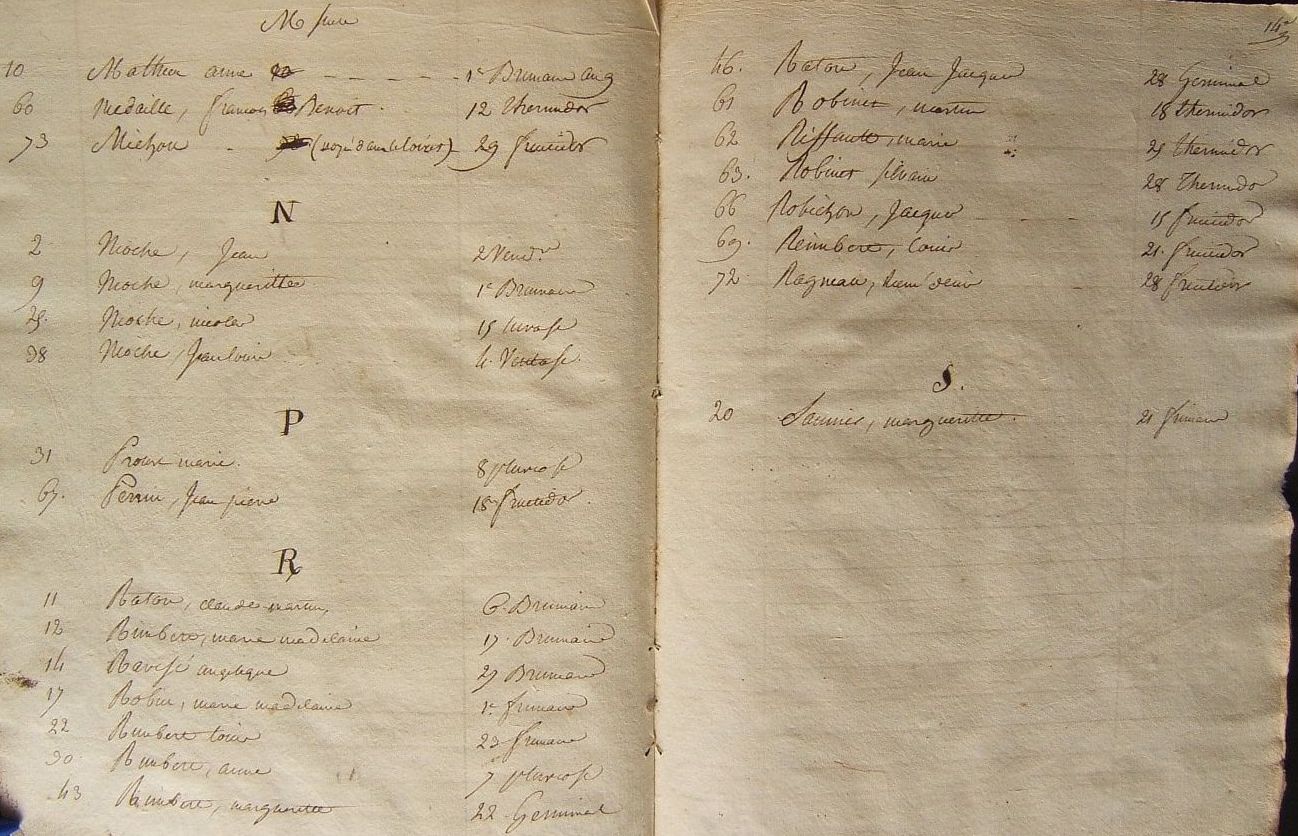 M suite
10 Mathieu anne 1er Brumaire an 9
60 Medaille, francois Benoit. 12 thermidor
73 Michou (noyé dans la loire) 29 fructidor
N
2 Moche, Jean 2 Vend.re
9 Moche, margueritte 1er Brumaire
25. Moche, nicolas 15 nivose
38 Moche, Jean louis 4. Ventose.
P
31 Proust marie. 8 pluviose
67. Perrin, Jean pierre 18 fructidor.
R
11 Raton, claude martin, 6. Brumaire
12 Rimbert, marie madelaine 17. Brumaire
14 Ravisé angelique 27 Brumaire
17 Robin, marie madelaine 1er frimaire
22 Rimbert louis 23 frimaire
30 Rimbert, anne 7 pluviose
43 Rimbert, margueritte 22 Germinal
14
46. Raton, Jean Jacques 28 Germinal
61 Robinet, martin 18 thermidor
62 Riffault, marie 25 thermidor
63. Robinet silvain 28 Thermidor
66 Robichon, Jacques 15 fructidor
69. Reimbert, louis 21. fructidor
72 Ragneau, denis 28 fructidor
S.
20 Saunier, margueritte. 21 frimaire